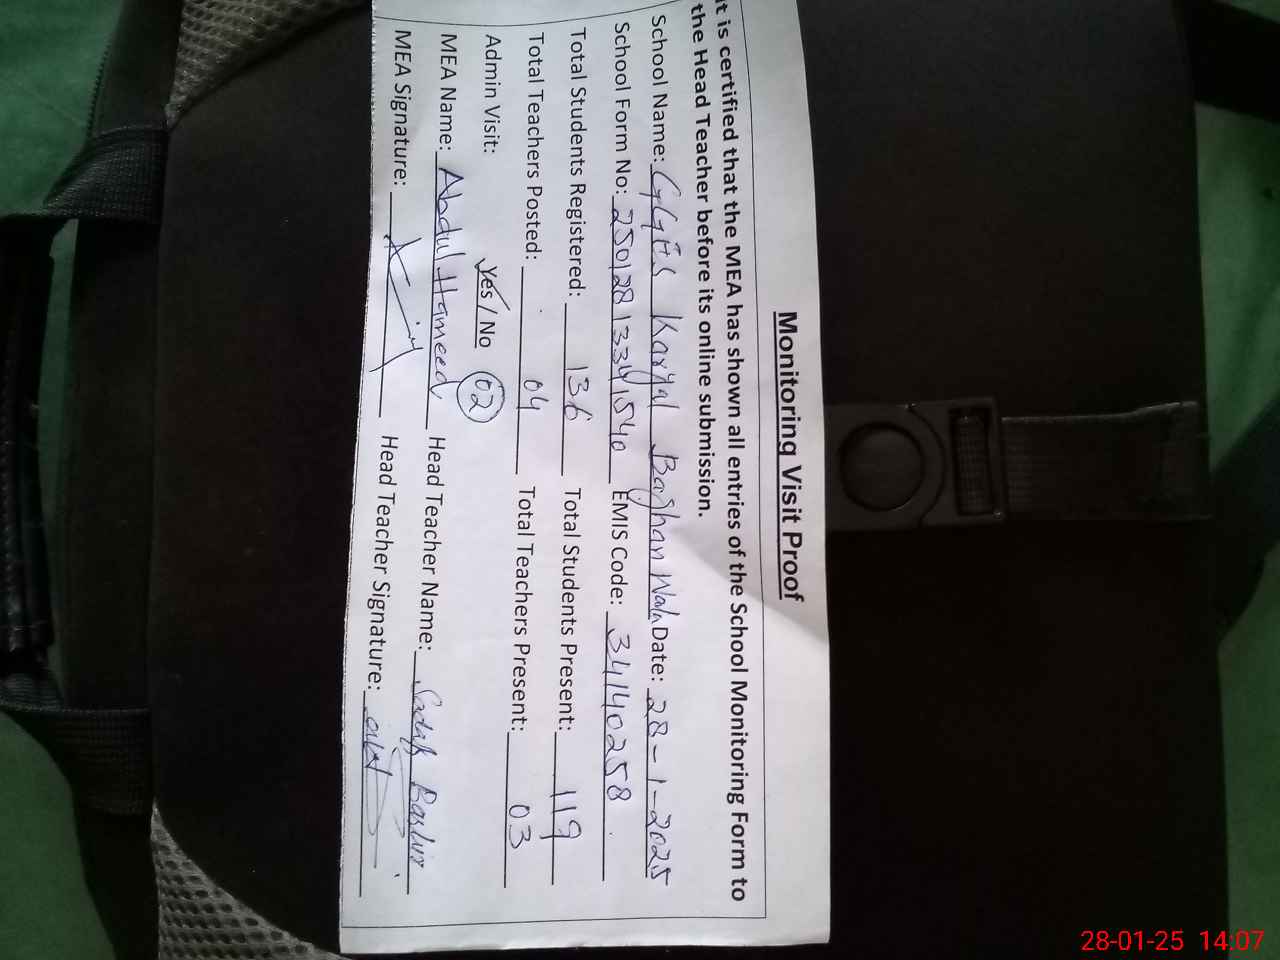 Monitoring Visit Proof
It is certified that the MEA has shown all entries of the School Monitoring Form to
the Head Teacher before its online submission.
School Name: GGES Karyal Baghan Wala Date: 28-1-2025
School Form No: 25012813341540 EMIS Code: 34140258
Total Students Registered: 136 Total Students Present: 119
Total Teachers Posted: 04 Total Teachers Present: 03
Admin Visit: Yes / No 02
MEA Name: Abdul Hameed Head Teacher Name: Sadaf Bashir
MEA Signature: Head Teacher Signature:
28-01-25 14:07